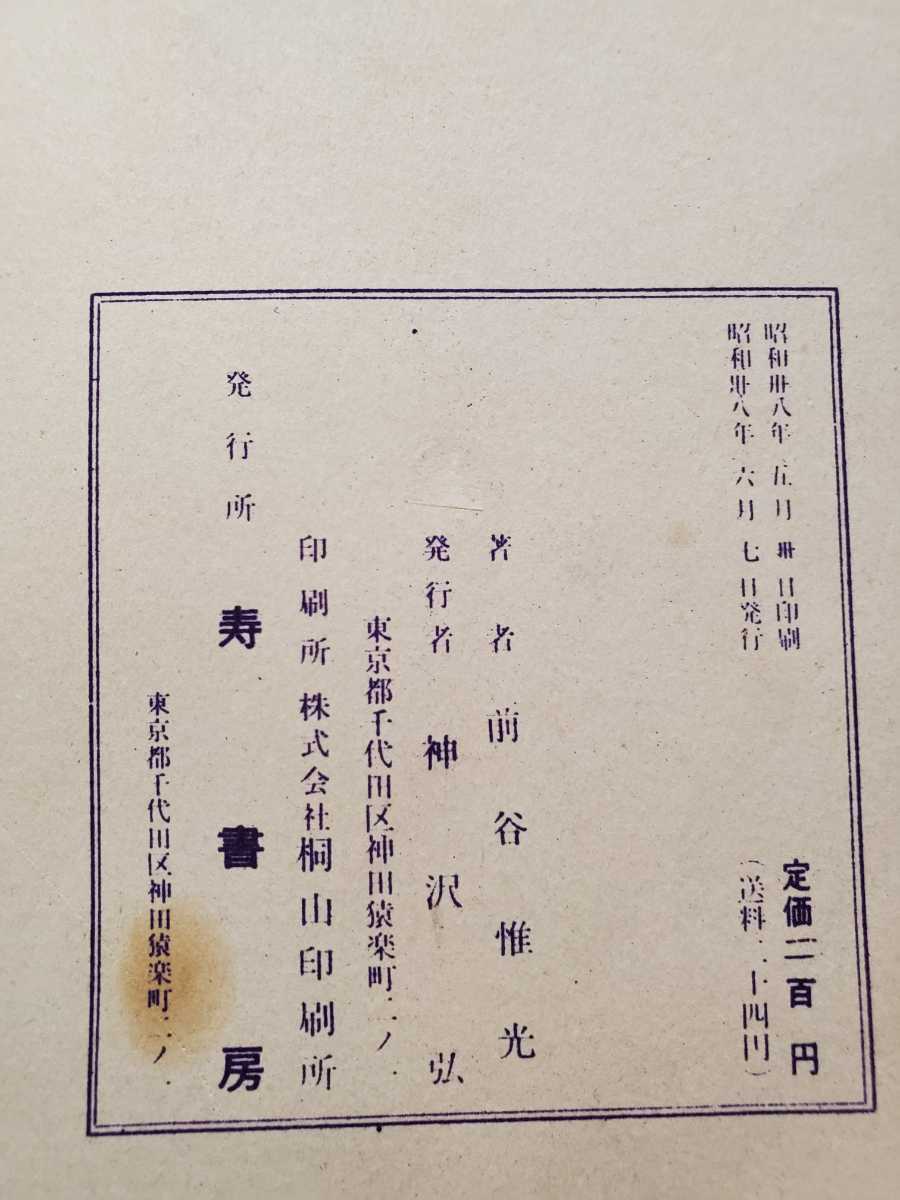 昭和卅八年五月卅日印刷
昭和卅八年六月七日発行
定価二百円
(送料二十四円)
著者 前谷惟光
発行者 神沢弘
東京都千代田区神田猿楽町二ノ
印刷所 株式会社桐山印刷所
発行所 寿書房
東京都千代田区神田猿楽町二ノ